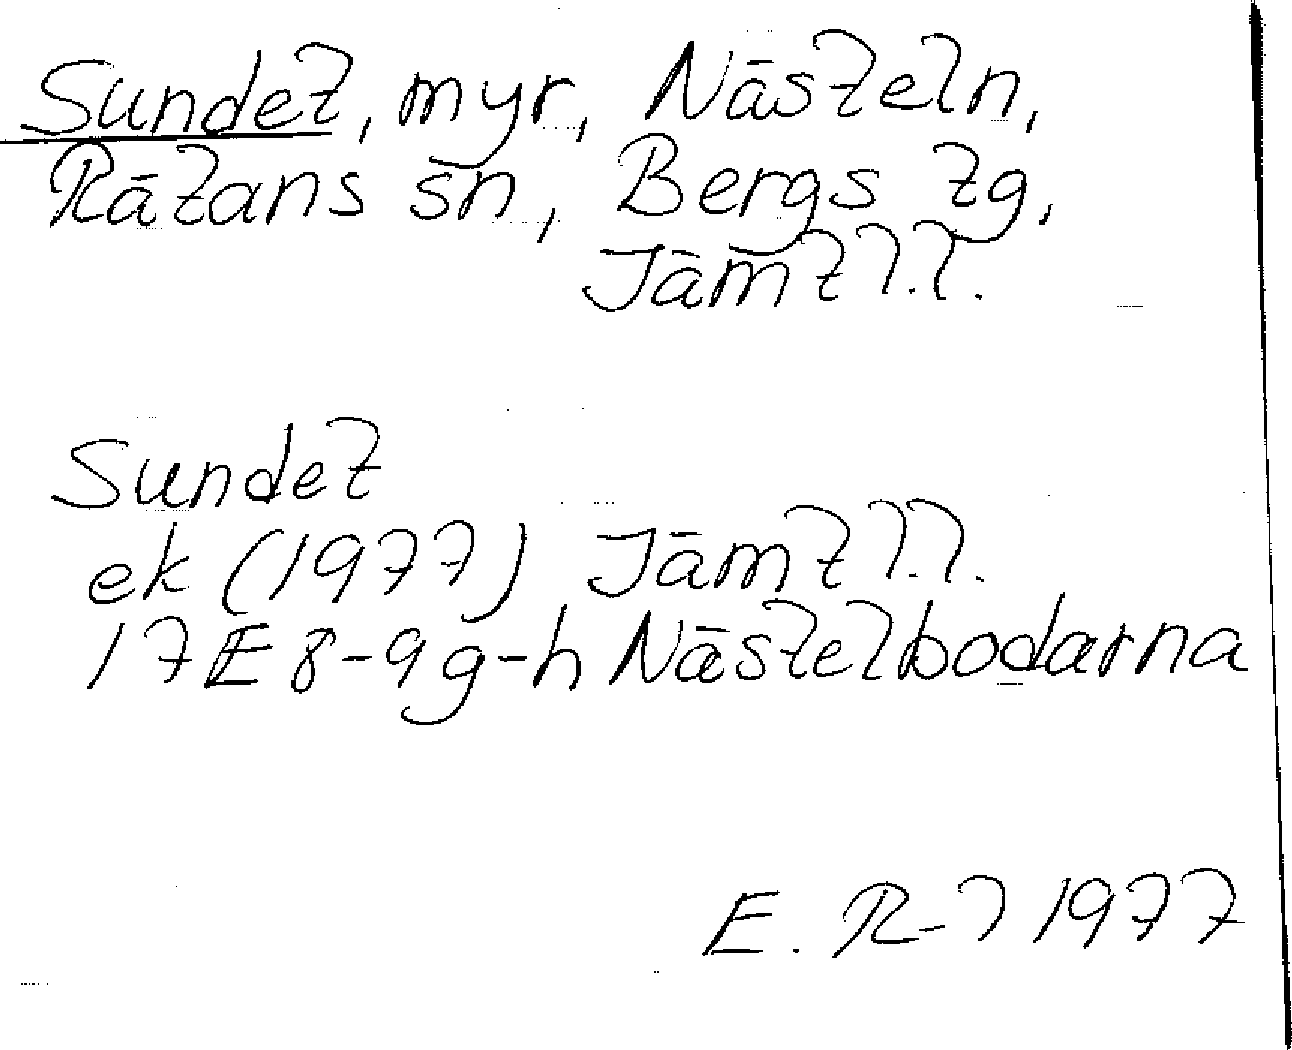 Sundet, myr, Nästeln,
Rätans sn, Bergs tg,
Jämtl.l.
Sundet
ek (1977) Jämtl.l.
17E 8-9g-h Nästelbodarna
E. R-l 1977